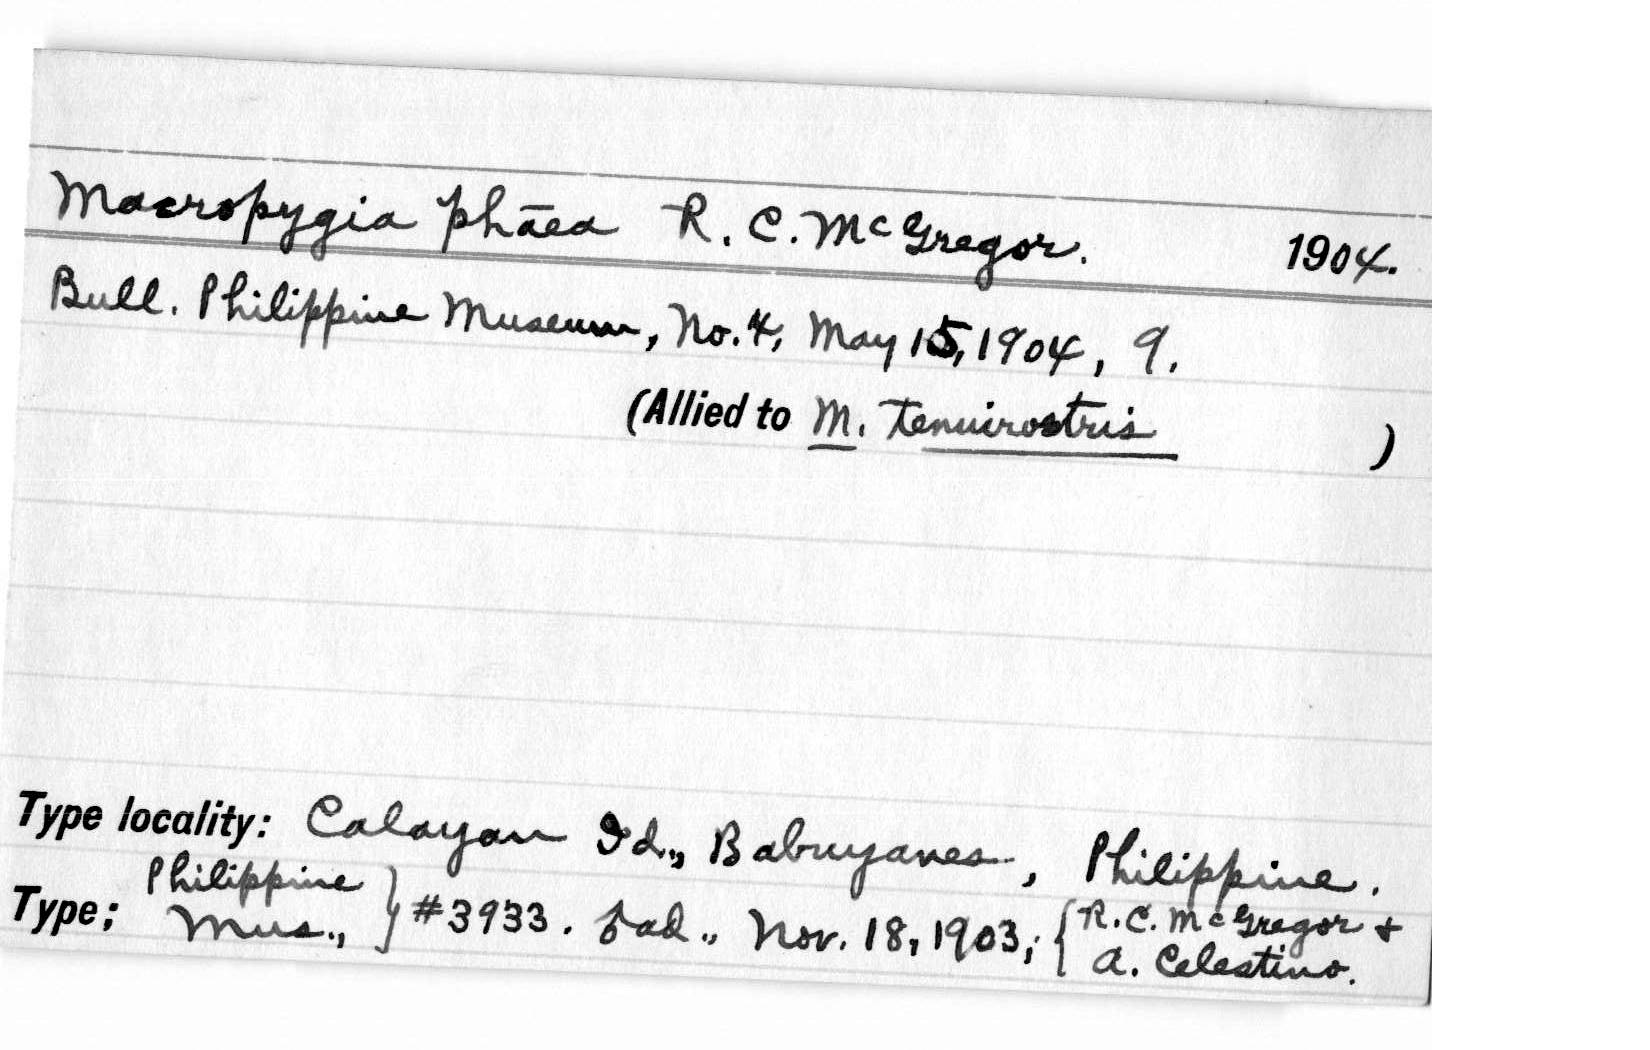 Macropygia phāea R. C. McGregor. 1904.
Bull. Philippine Museum, No. 4, May 15, 1904, 9.
(Allied to M. tenuirostris )
Type locality: Calayan Id., Babuyanes, Philippine.
Type; Philippine Mus., } #3933. ad., Nov. 18, 1903; { R. C. McGregor + A. Celestino.